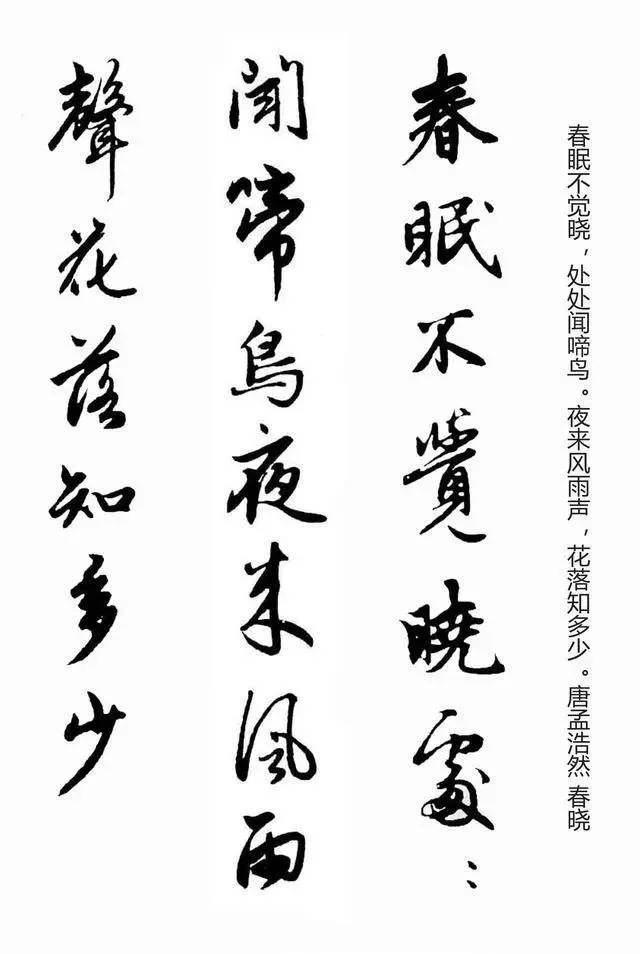 春眠不觉晓，处处闻啼鸟。夜来风雨声，花落知多少。唐孟浩然 春晓
春眠不覺曉處：
聞啼鳥夜来風雨
聲花落知多少